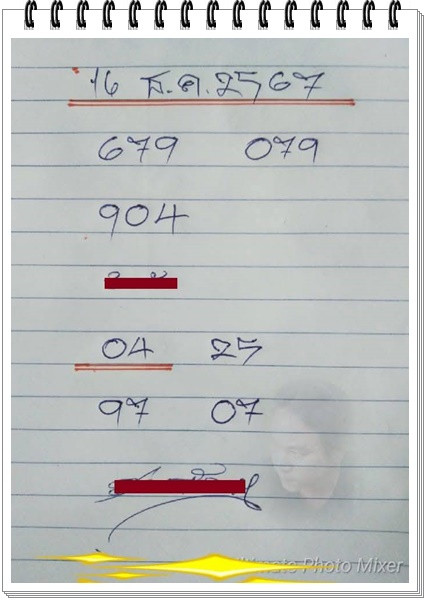 16 ธ.ค.2567
679 079
904
04 25
97 07
Photo Mixer